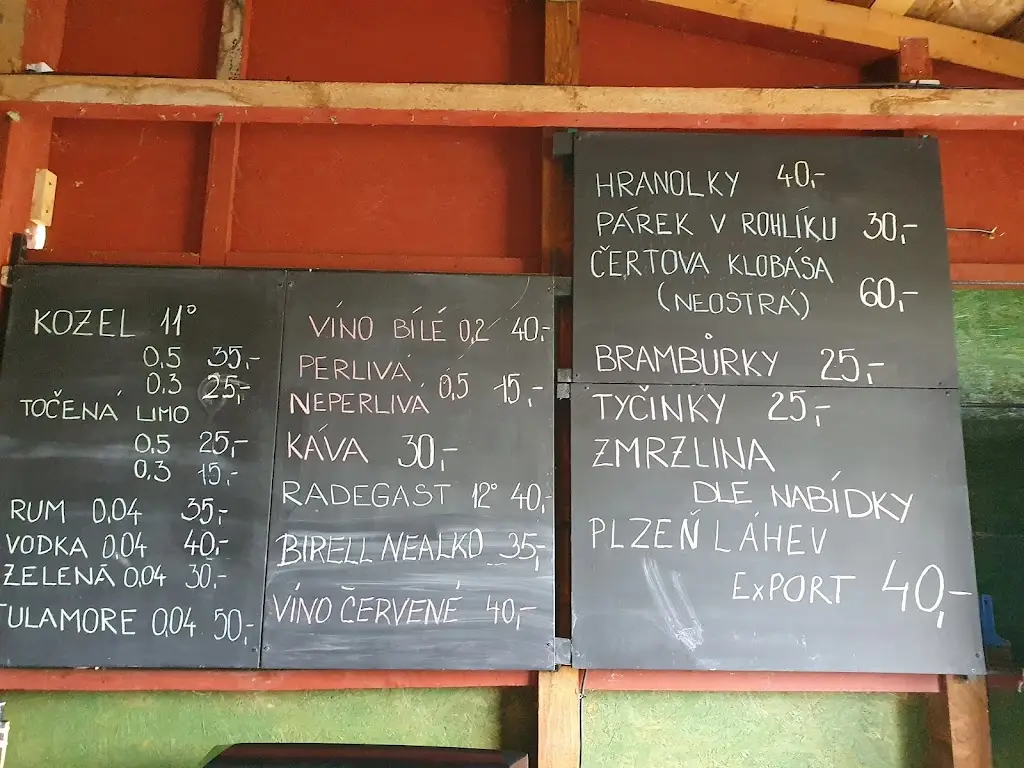 KOZEL 11°
0,5 35,-
0.3 25,-
TOČENÁ LIMO
0.5 25,-
0.3 15,-
RUM 0,04 35,-
VODKA 0.04 40,-
ZELENÁ 0,04 30,-
TULAMORE 0,04 50,-
VÍNO BÍLÉ 0,2 40,-
PERLIVÁ
NEPERLIVÁ 0,5 15,-
KÁVA 30,-
RADEGAST 12° 40,-
BIRELL NEALKO 35,-
VÍNO ČERVENÉ 40,-
HRANOLKY 40,-
PÁREK V ROHLÍKU 30,-
ČERTOVA KLOBÁSA
(NEOSTRÁ) 60,-
BRAMBŮRKY 25,-
TYČINKY 25,-
ZMRZLINA
DLE NABÍDKY
PLZEŇ LÁHEV
EXPORT 40,-